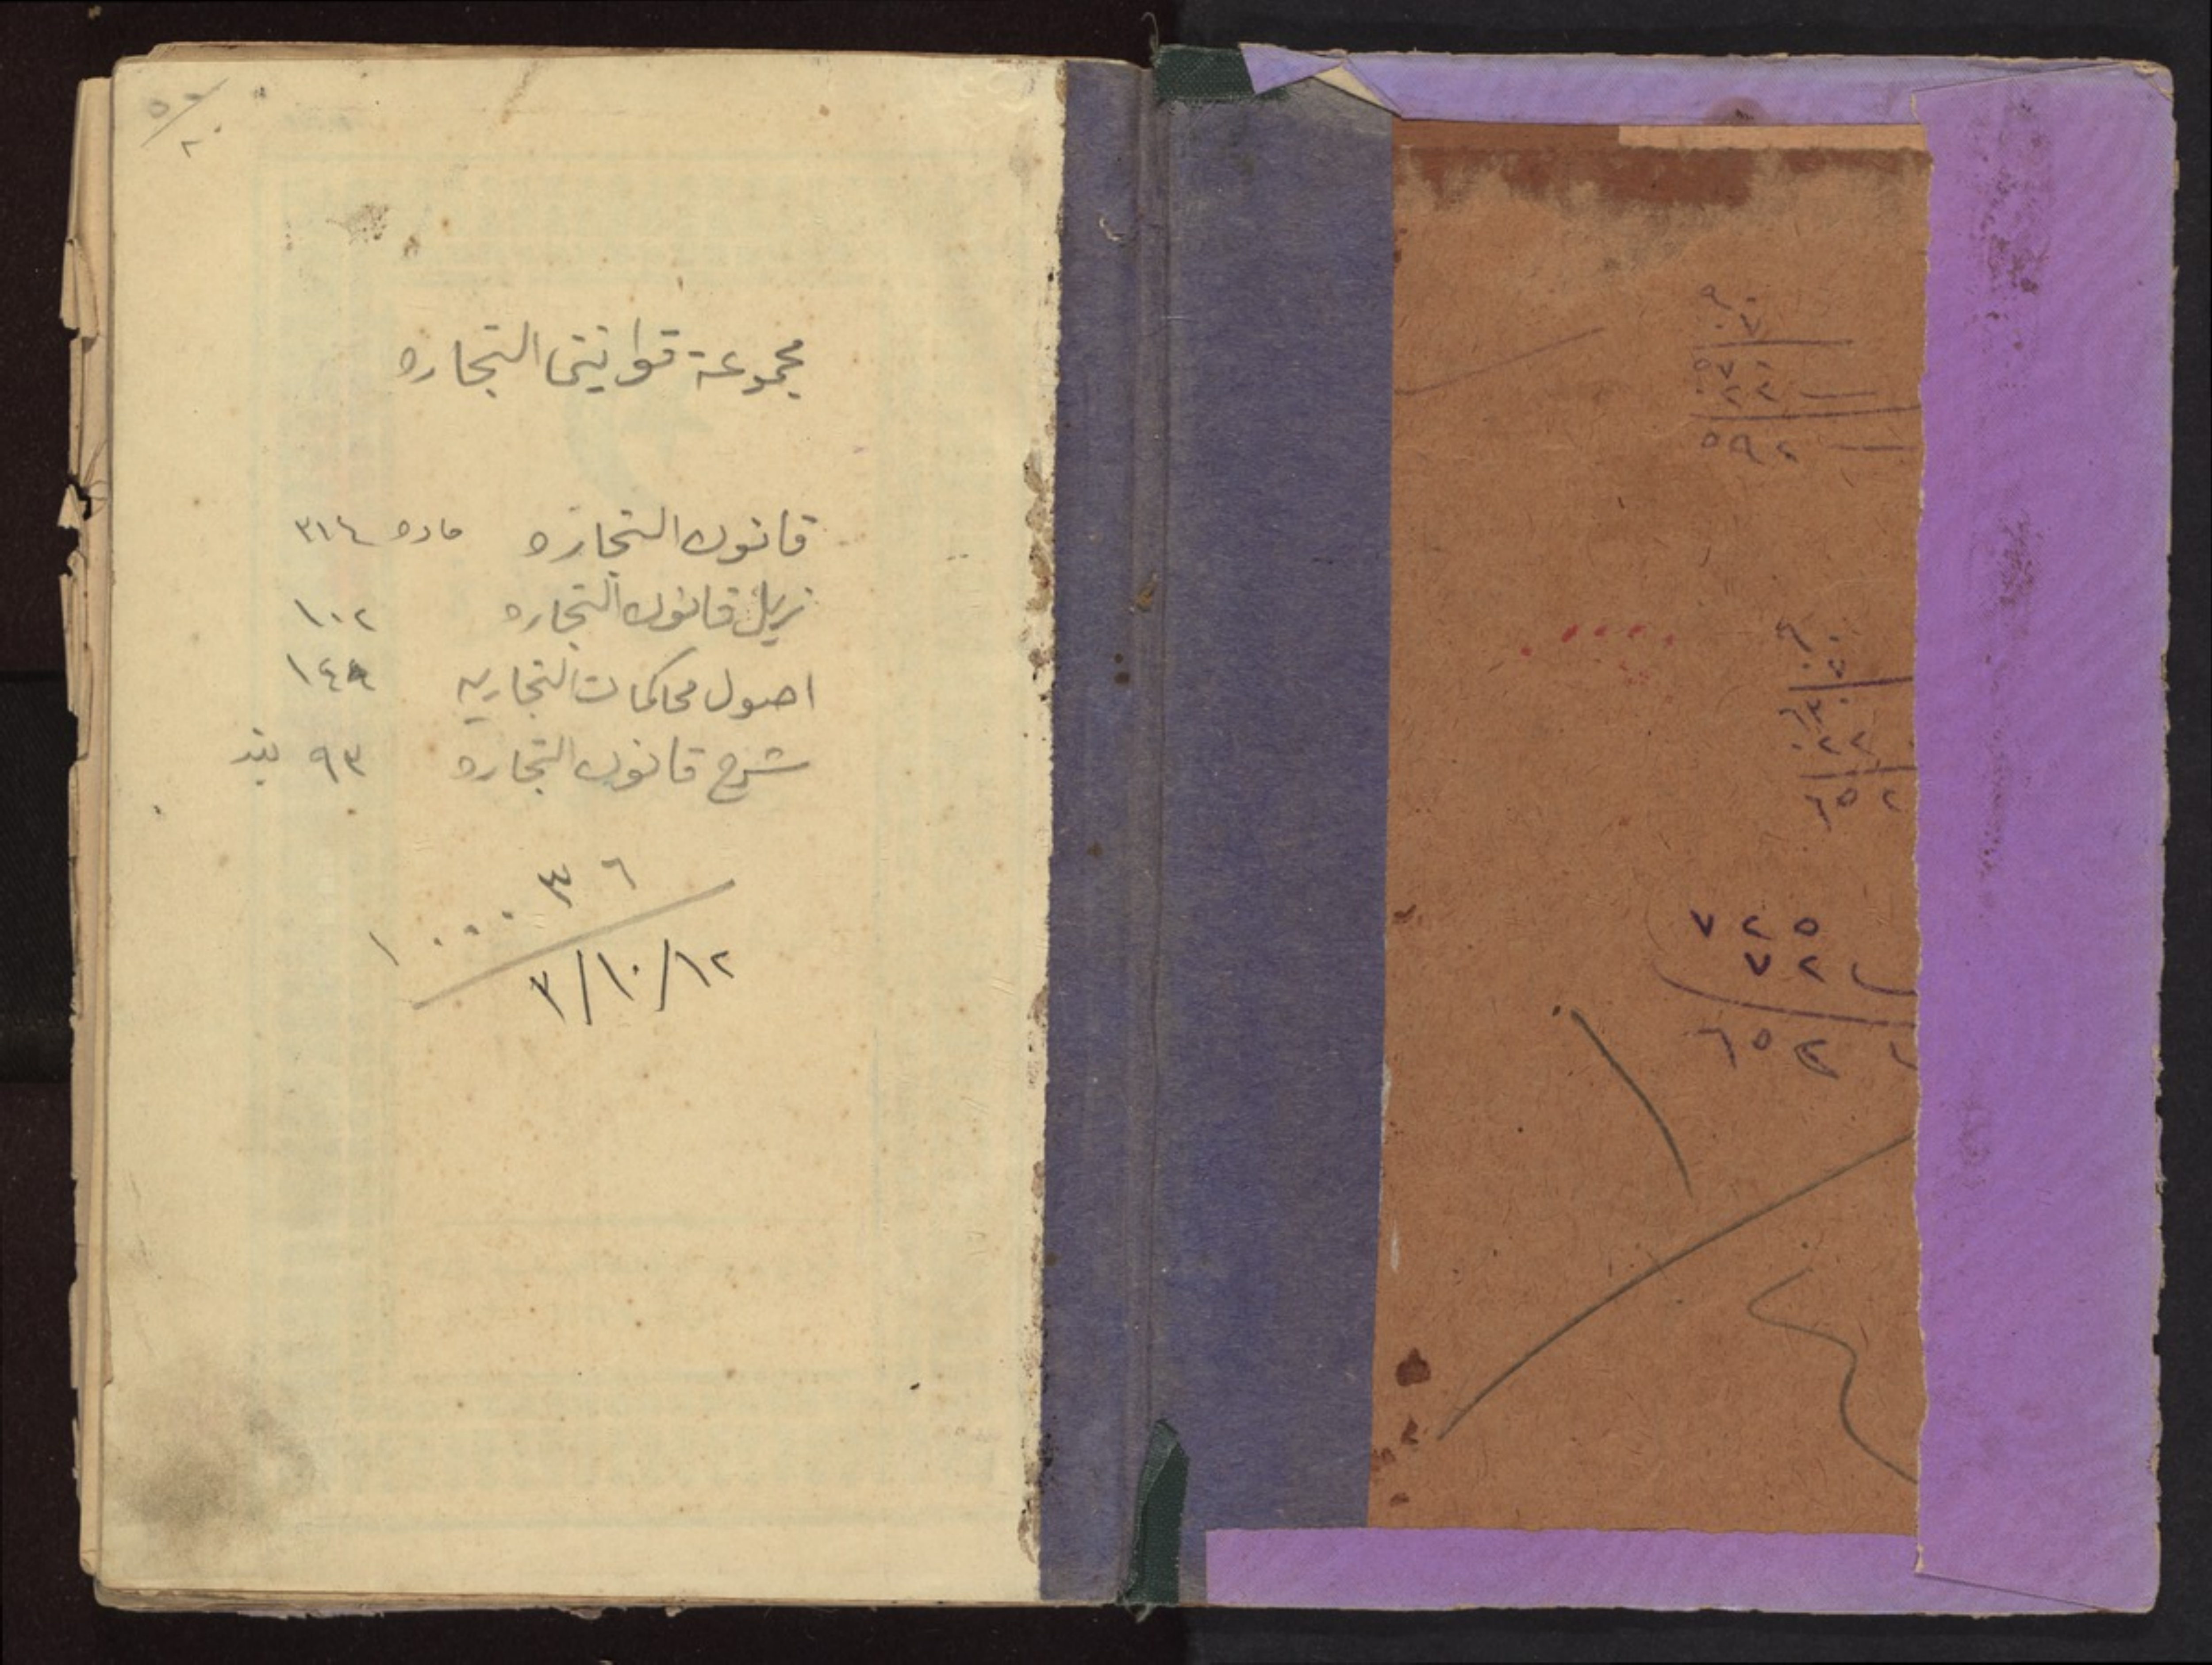 مجموعة قوانين التجاره
قانون التجاره ماده ٣١٤
ذيل قانون التجاره ١٠٢
اصول محاكمات التجاريه ١٤٩
شرح قانون التجاره ٩٣ بند
٣٦
١٠٠٠٠
٣/١٠/١٢
٥٩٢
٧٢٥
٧٢
٦٥٣